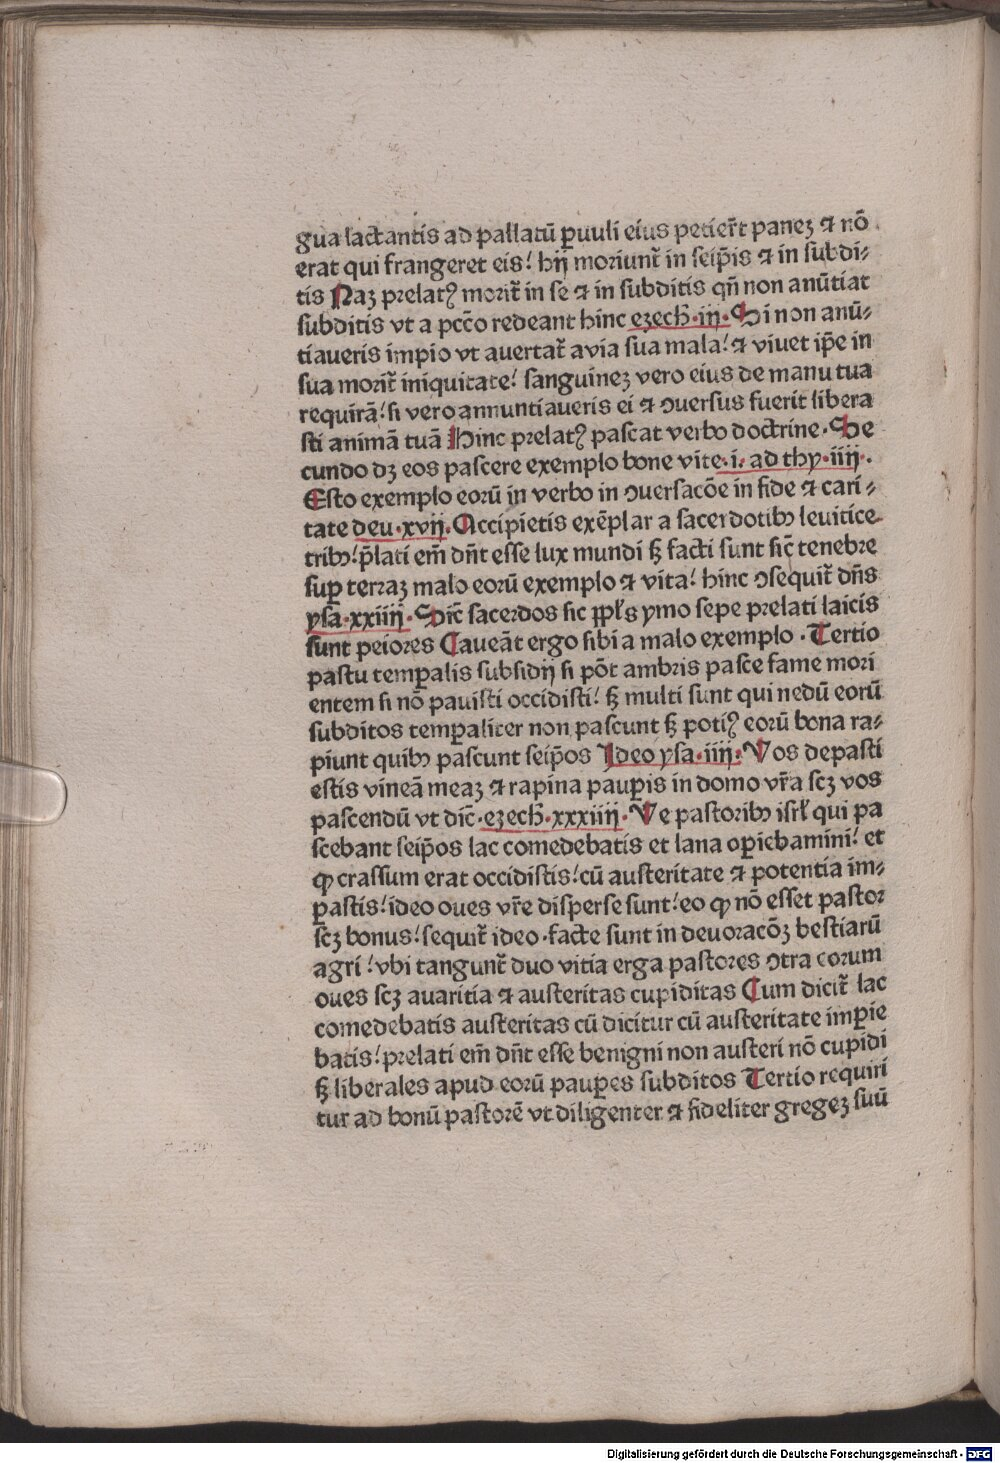 gua lactantis ad pallatū ꝑuuli eius petier̄t panez ⁊ nō
erat qui frangeret eis! hij moriunt̄ in seip̄is ⁊ in subdi⸗
tis Naz prelatꝰ morit̄ in se ⁊ in subditis qn̄ non anūtiat
subditis vt a pcc̄o redeant hinc ezech̄·iij·Si non anū⸗
tiaveris impio vt auertat̄ a via sua mala! ⁊ viuet ip̄e in
sua morit̄ iniquitate! sanguinez vero eius de manu tua
requirā! si vero annuntiaueris ei ⁊ ꝯuersus fuerit libera
sti animā tuā Hinc prelatꝰ pascat verbo doctrine·Se
cundo dz eos pascere exemplo bone vite·i·ad thy·iiij·.
Esto exemplo eorū in verbo in ꝯuersacōe in fide ⁊ cari⸗
tate deu·xvij·Accipietis exēplar a sacerdotibꝫ leuitice
tribꝫ! p̄lati em̄ dn̄t esse lux mundi sꝫ facti sunt sic̄ tenebre
suꝑ terraz malo eorū exemplo ⁊ vita! hinc ꝯsequit̄ dn̄s
ysa·xxiiij·Sic̄ sacerdos sic ꝓpl's ymo sepe prelati laicis
sunt peiores Caueāt ergo sibi a malo exemplo·Tertio
pastu temꝑalis subsidij si pōt ambris pasce fame mori
entem si nō pauisti occidisti! sꝫ multi sunt qui nedū eorū
subditos temꝑaliter non pascunt sꝫ potiꝰ eorū bona ra⸗
piunt quibꝫ pascunt seip̄os Ideo ysa·iiij·Vos depasti
estis vineā meaz ⁊ rapina pauꝑis in domo vr̄a scꝫ vos
pascendū vt dic̄·ezech̄·xxxiiij·Ve pastoribꝫ isrl' qui pa
scebant seip̄os lac comedebatis et lana oꝑiebamini! et
ꝙ crassum erat occidistis! cū austeritate ⁊ potentia im⸗
ꝑastis! ideo oues vr̄e disperse sunt! eo ꝙ nō esset pastor
scꝫ bonus! sequit̄ ideo·facte sunt in deuoracōꝫ bestiarū
agri! vbi tangunt̄ duo vitia erga pastores ꝯtra eorum
oues scꝫ auaritia ⁊ austeritas cupiditas Cum dicit̄ lac
comedebatis austeritas cū dicitur cū austeritate imꝑie
batis! prelati em̄ dn̄t esse benigni non austeri nō cupidi
sꝫ liberales apud eorū pauꝑes subditos Tertio requiri
tur ad bonū pastorē vt diligenter ⁊ fideliter gregez suū
Digitalisierung gefördert durch die Deutsche Forschungsgemeinschaft - DFG